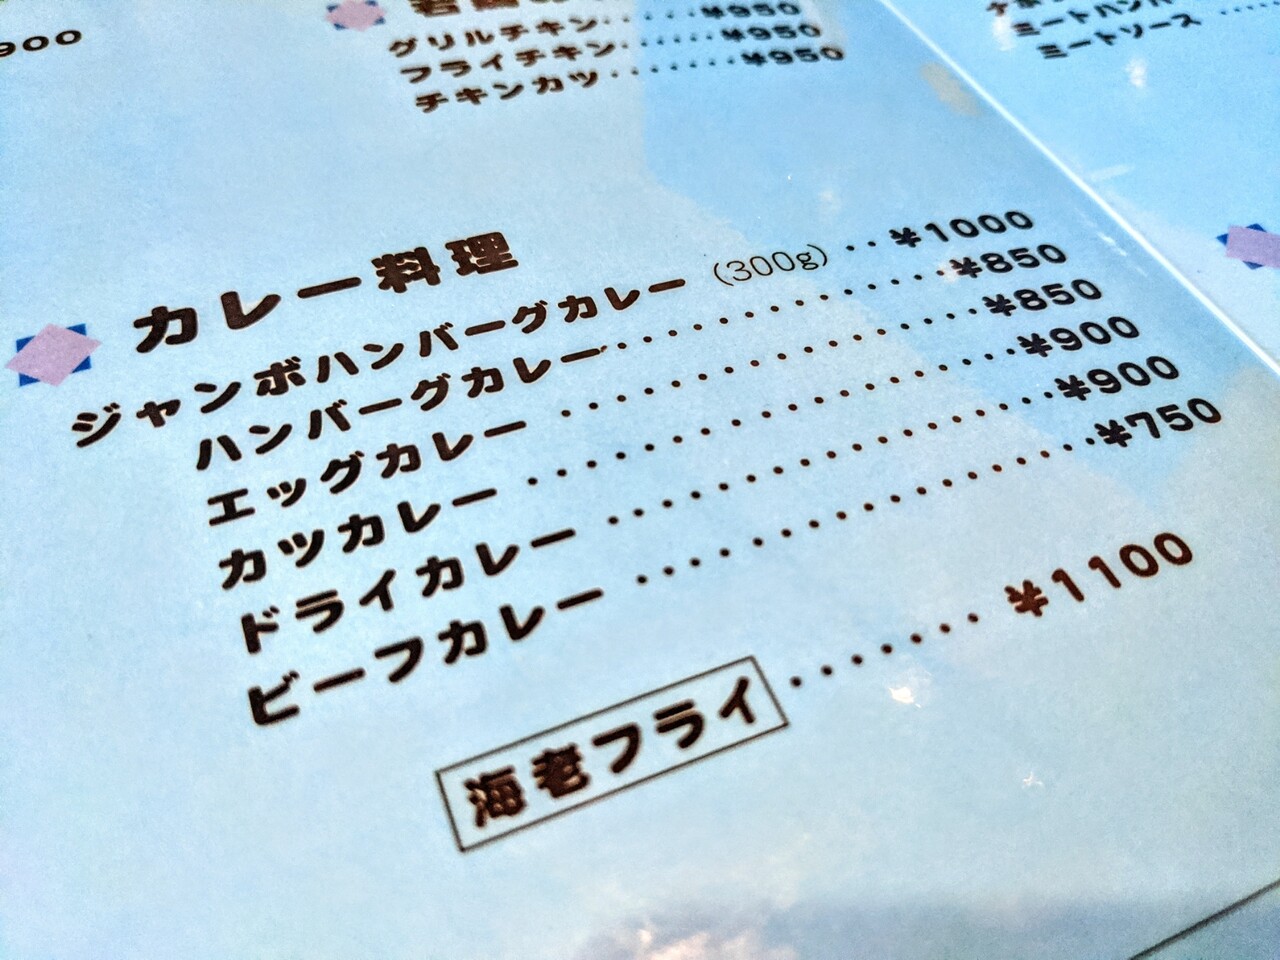 900
グリルチキン‥‥‥¥950
フライチキン‥‥‥¥950
チキンカツ‥‥‥‥¥950
ミートソース‥‥
カレー料理
ジャンボハンバーグカレー (300g) ‥¥1000
ハンバーグカレー‥‥‥‥‥‥¥850
エッグカレー‥‥‥‥‥‥‥‥¥850
カツカレー‥‥‥‥‥‥‥‥‥¥900
ドライカレー‥‥‥‥‥‥‥‥¥900
ビーフカレー‥‥‥‥‥‥‥‥¥750
海老フライ‥‥‥‥¥1100